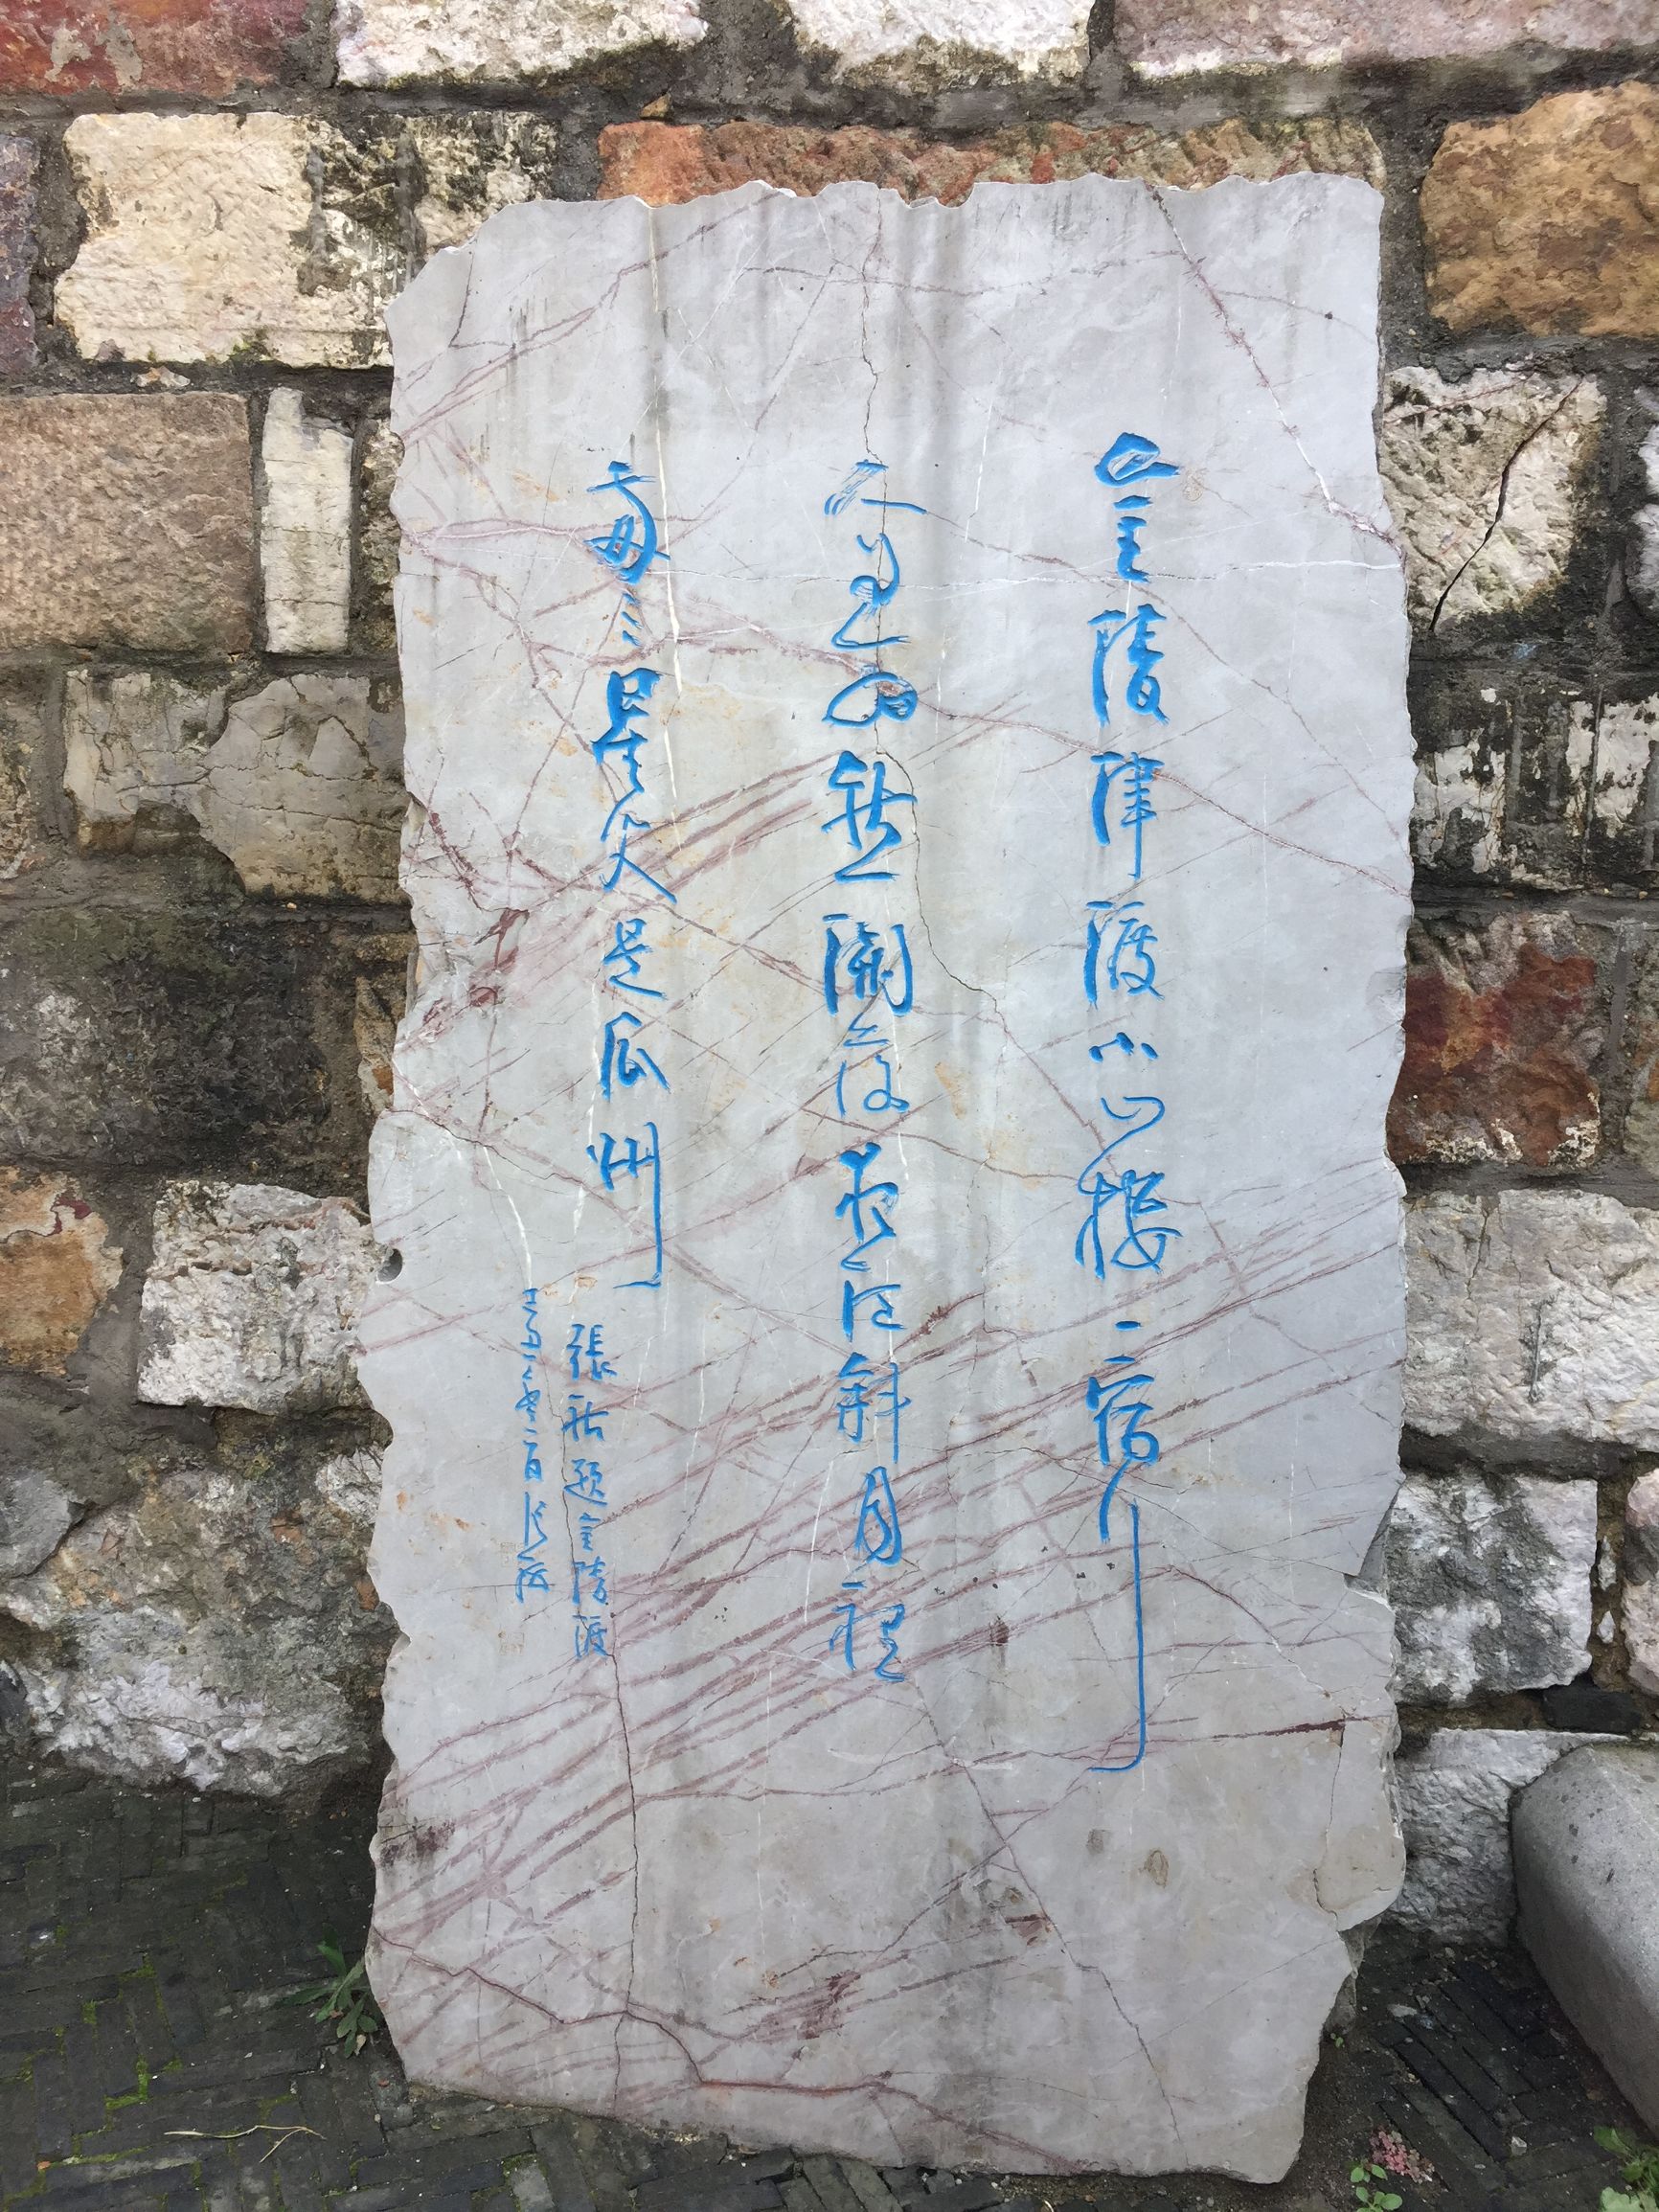 金陵津渡小山樓一宿行
人自可愁潮落夜江斜月裡
兩三星火是瓜州
張祜題金陵渡